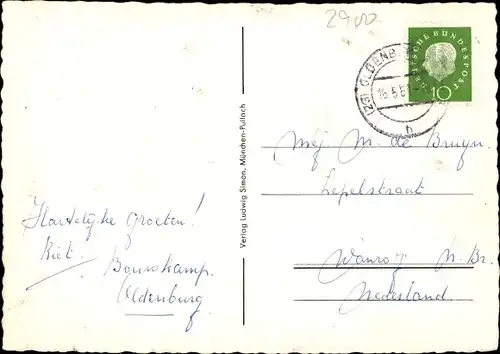 2900
DEUTSCHE BUNDESPOST
10
(23) OLDENB
16.5.61
h
Verlag Ludwig Simon, München-Pullach
Mej M. de Bruyn.
Lepelstraat
Wanroy N.Br.
Nederland
Hartelijke groeten!
Riet.
Bouwkamp.
Oldenburg